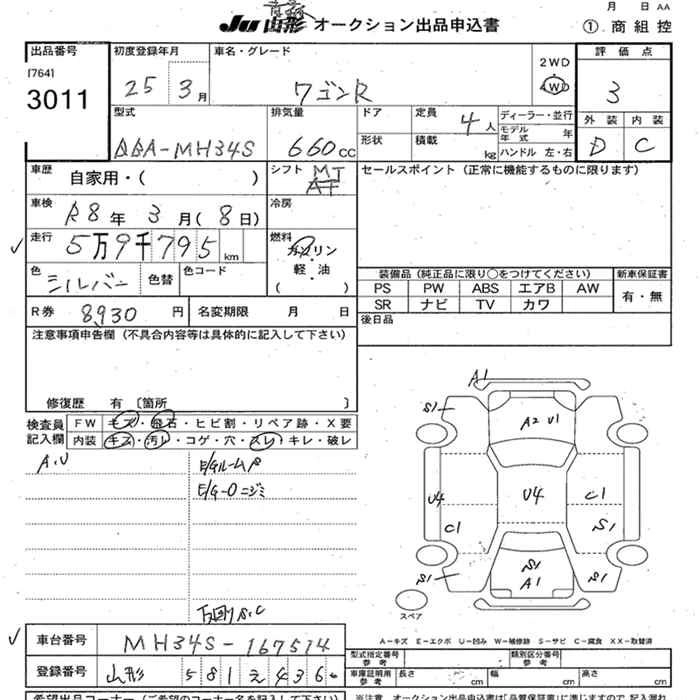 月 日 AA
JU 山形 オークション出品申込書
① 商 組 控
出品番号
[764]
3011
初度登録年月
25 3月
車名・グレード
ワゴンR
2WD
4WD
評価点
3
外装 内装
D C
型式
QBA-MH34S
排気量
660cc
ドア
形状
定員 4人
積載 kg
ディーラー・並行
モデル年式 年
ハンドル 左・右
車歴
自家用・( )
シフト MT
AT
セールスポイント(正常に機能するものに限ります)
車検
R8年 3月(8日)
冷房
走行
5万9千795km
燃料
ガソリン
・
軽・油
( )
色
シルバー
色替
色コード
装備品(純正品に限り○をつけてください)
新車保証書
PS PW ABS エアB AW
SR ナビ TV カワ
有・無
R券 8,930円
名変期限 月 日
後日品
注意事項申告欄(不具合内容等は具体的に記入して下さい)
修復歴 有〔箇所 〕
検査員記入欄
FW キズ・飛石・ヒビ割・リペア跡・X要
内装 キズ・汚レ・コゲ・穴・スレ・キレ・破レ
A.U
E/Gルーム
E/G-Oニジミ
S.C
A1
S1
A2 U1
U4
U4
C1
C1
S1
S1
A1
S1
S1
スペア
A−キズ E−エクボ U−凹み W−補修跡 S−サビ C−腐食 XX−取替済
車台番号
MH34S-167514
登録番号
山形 581 え 436
型式指定番号
参考
類別区分番号
参考
車庫証明用
参考
長さ cm
幅 cm
高さ cm
希望出品コーナー(ご希望のコーナー名を記入して下さい)
※注意 オークション出品者は「品質保証書」に準じますので、記入漏れ